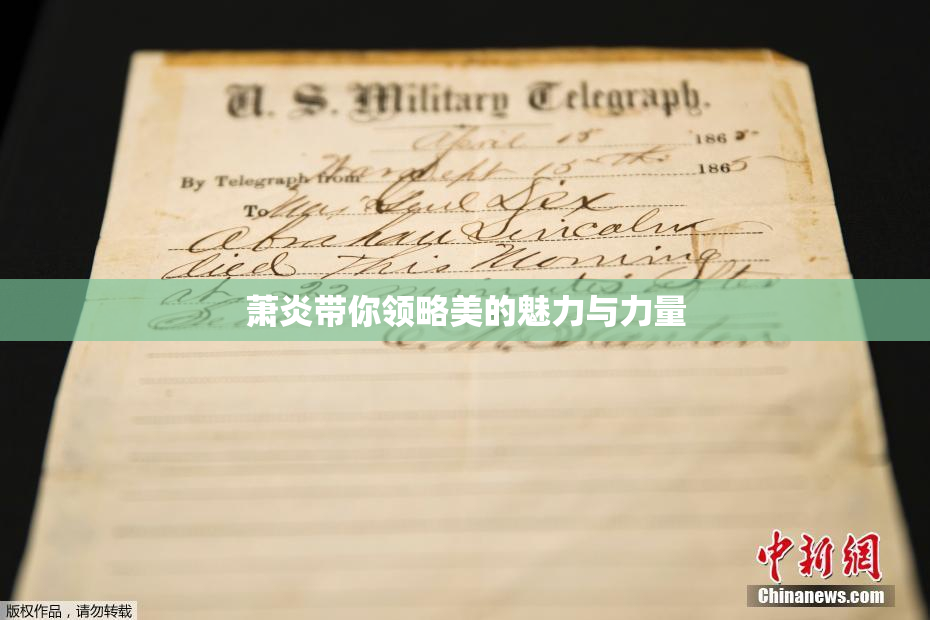 U. S. Military Telegraph.
April 15 1865
By Telegraph from War Dept 15th 1865
To Maj Genl Dix
Abraham Lincoln
died This Morning
at 22 minutes after
萧炎带你领略美的魅力与力量
E. M. Stanton
中新网
Chinanews.com
版权作品，请勿转载